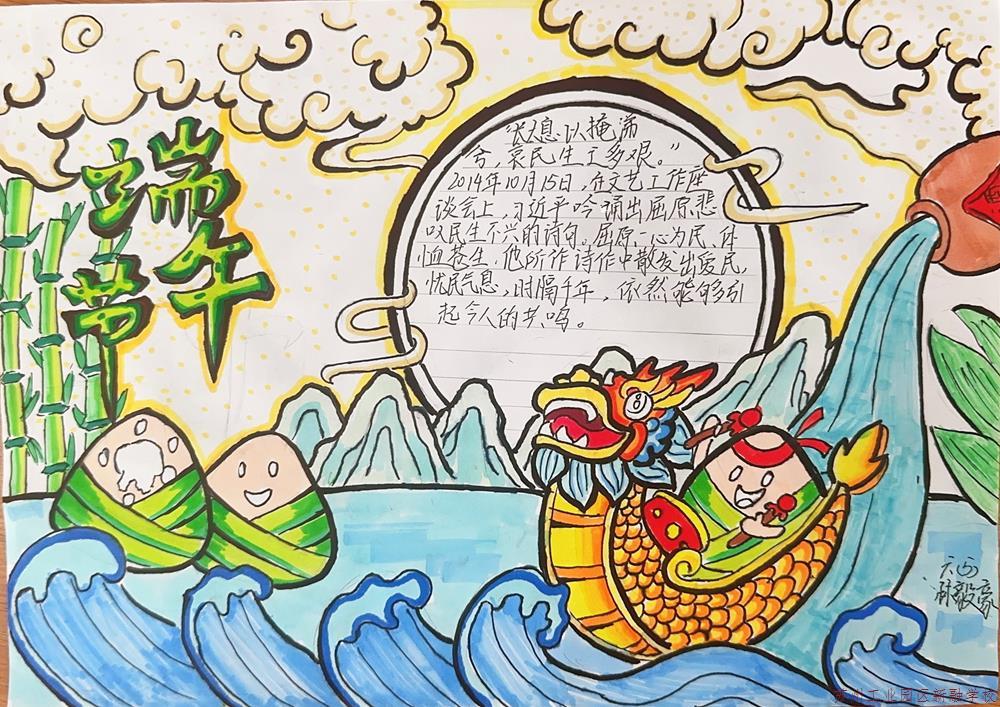 端午
节
"长太息以掩涕
兮，哀民生之多艰。"
2014年10月15日，在文艺工作座
谈会上，习近平吟诵出屈原悲
叹民生不兴的诗句。屈原一心为民、体
恤苍生，他所作诗作中散发出爱民，
忧民气息，时隔千年，依然能够引
起今人的共鸣。
六(5)
毅豪
苏州工业园区新融学校